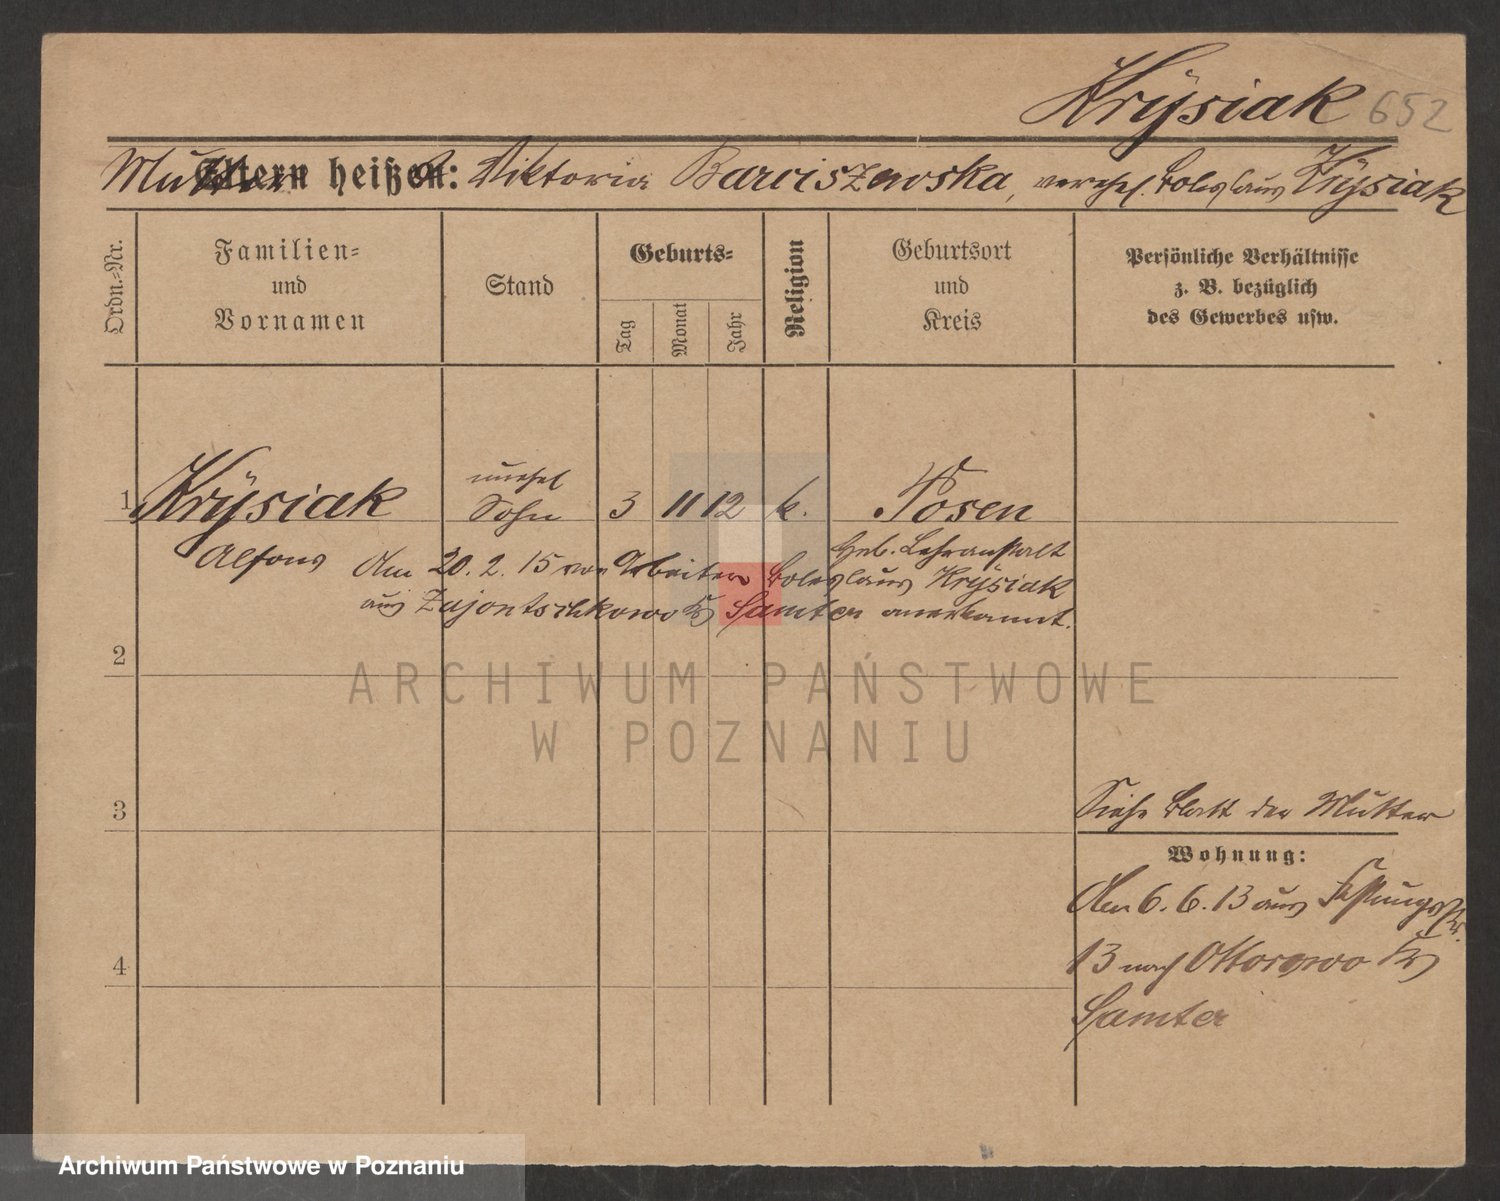 Krÿsiak 652
Mutter heißt: Viktoria Barciszewska, verehel. Boleslaus Krÿsiak
Ordn.-Nr.
Familien-
und
Vornamen
Stand
Geburts-
Tag
Monat
Jahr
Religion
Geburtsort
und
Kreis
Persönliche Verhältnisse
z. B. bezüglich
des Gewerbes usw.
unehel
1 Krÿsiak Sohn 3 11 12 k. Posen
Heb. Lehranstalt
Alfons Am 20. 2. 15 von Arbeiter Boleslaus Krÿsiak
aus Zajontschkowo Kr Samter anerkannt.
2
ARCHIWUM PAŃSTWOWE
W POZNANIU
3 Siehe Blatt der Mutter
Wohnung:
Am 6. 6. 13 aus Festungsstr.
4 13 nach Ottorowo Kr
Samter
Archiwum Państwowe w Poznaniu